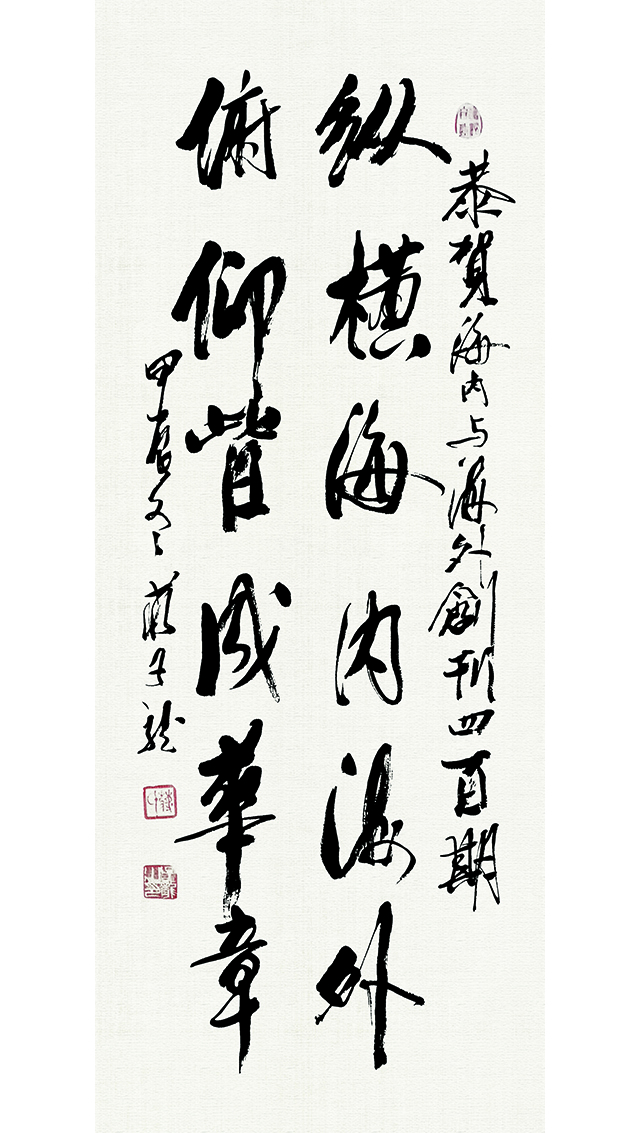 恭賀海内与海外創刊四百期
纵横海内海外
俯仰皆成華章
甲辰冬 蔣子龍